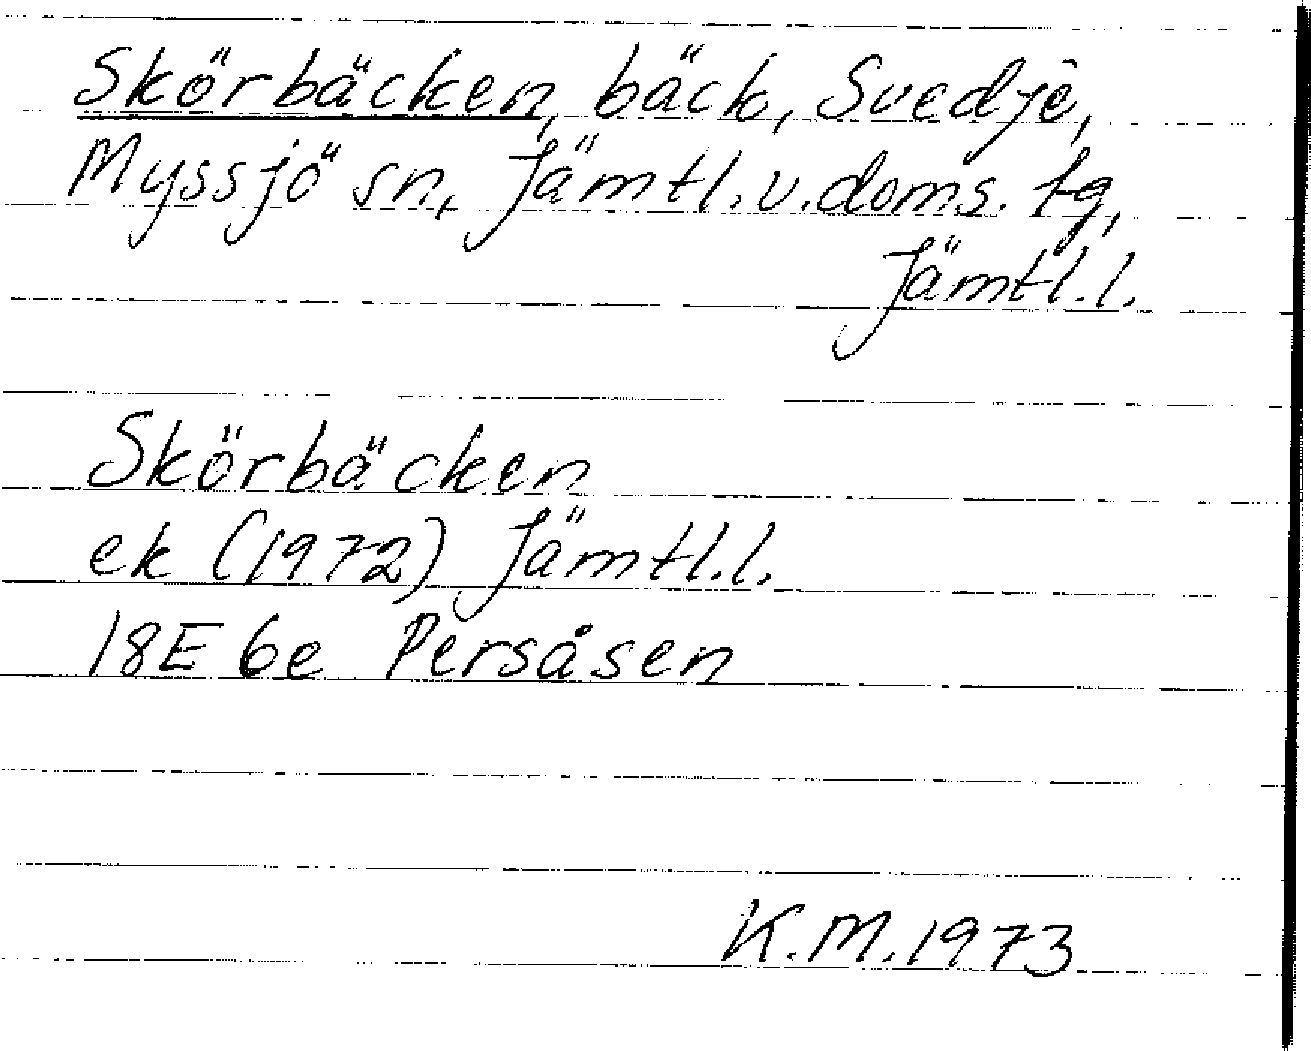 Skörbäcken, bäck, Svedje,
Myssjö sn, Jämtl. v. doms. tg,
Jämtl. l.
Skörbäcken
ek (1972) Jämtl. l.
18E 6e Persåsen
K.M. 1973